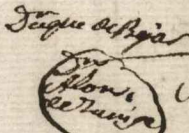 Duque de Bejar
Dn
Alonso
de Zuñiga